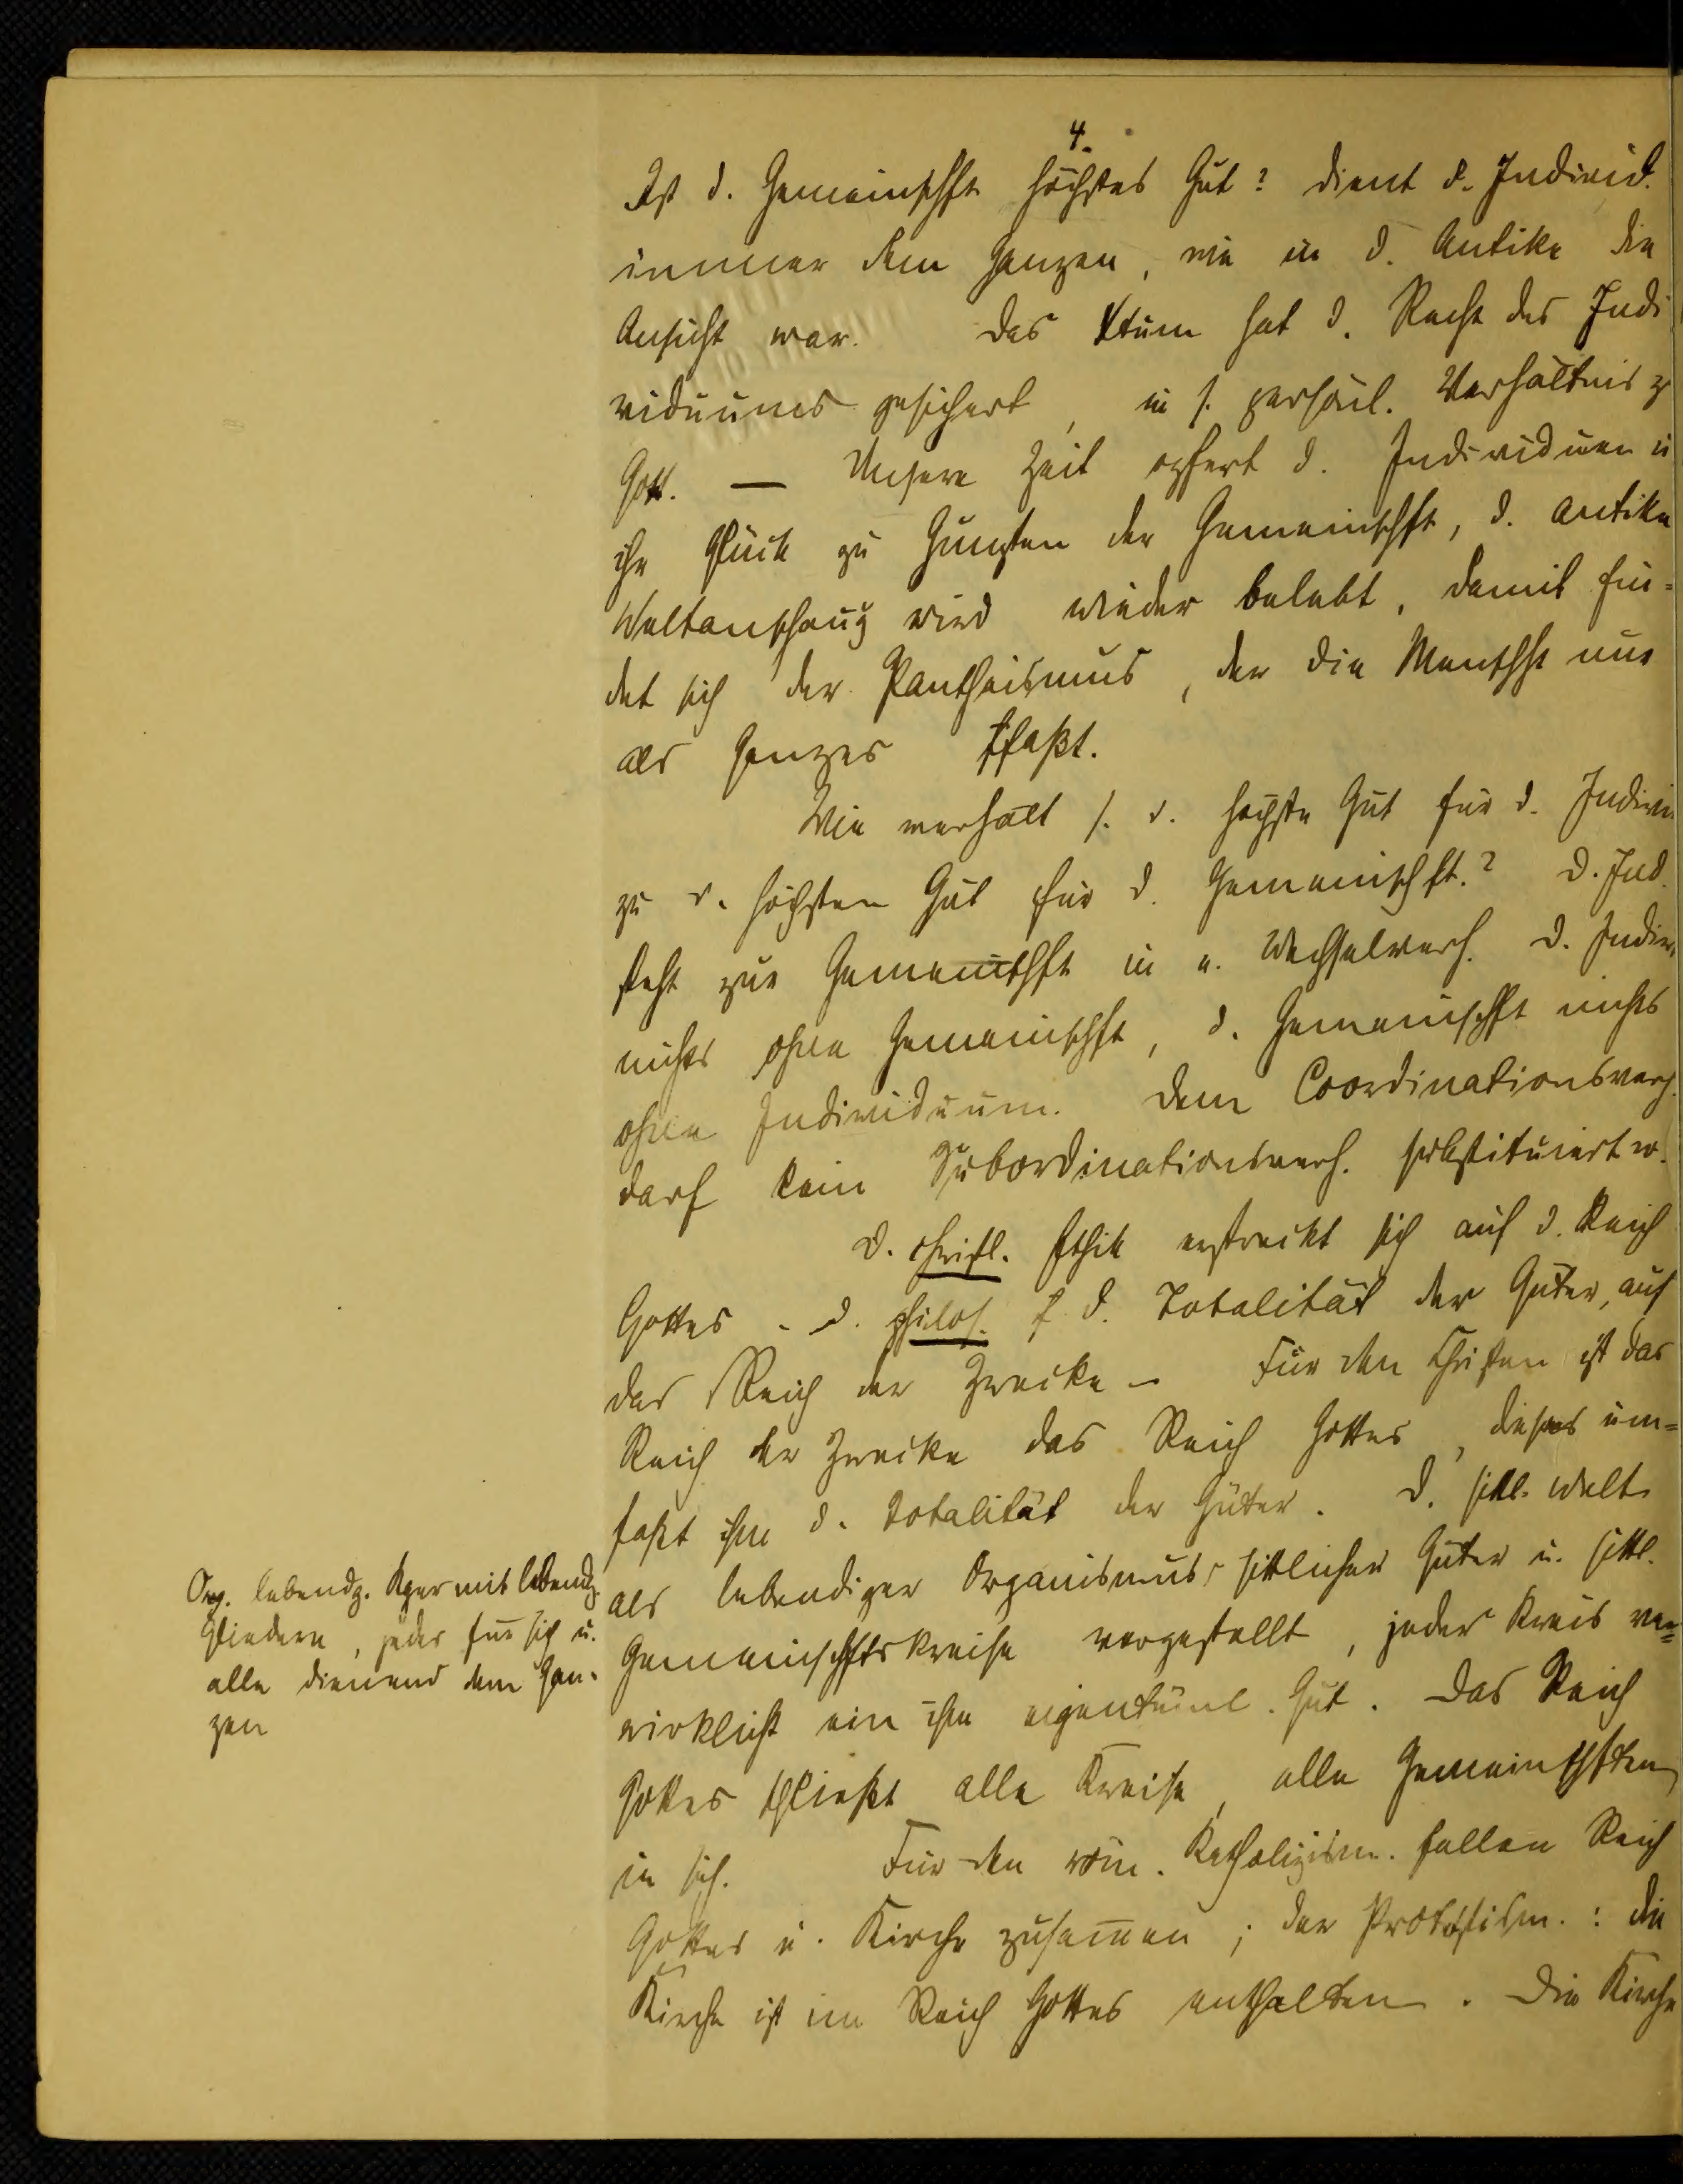 4.
Ist d. Gemeinschft höchstes Gut? dient d. Individ.
immer dem Ganzen, wie in d. Antike die
Ansicht war. Das Xtum hat d. Recht des Indi
viduums gesichert, in s. persönl. Verhältnis z
Gott. — Unsere Zeit opfert d. Individuen u
ihr Glück zu Gunsten der Gemeinschft, d. antike
Weltanschaug wird wieder belebt, damit fin=
det sich der Pantheismus, der die Menschh nur
als Ganzes faßt.
Wie verhält s. d. höchste Gut für d. Indivi
zu d. höchsten Gut für d. Gemeinschft.? D. Ind.
steht zur Gemeinschft in e. Wechselverh. D. Indiv.
nichts ohne Gemeinschft, d. Gemeinschft nichts
ohne Individuum. Dem Coordinationsverh.
darf kein Subordinationsverh. substituiert w.
D. christl. Ethik erstreckt sich auf d. Reich
Gottes - d. philos. f d. Totalität der Güter, auf
das Reich der Zwecke - Für den Christen ist das
Reich der Zwecke das Reich Gottes, dieses um=
faßt ihm d. Totalität der Güter. D. sittl. Welt
als lebendiger Organismus sittlicher Güter u. sittl.
Gemeinschftskreise vorgestellt, jeder Kreis ver=
wirklicht ein ihm eigentüml. Gut. Das Reich
Gottes schließt alle Kreise, alle Gemeinschften
in sich. Für den röm. Katholizism. fallen Reich
Gottes u. Kirche zusam̄en; der Protestism.: die
Kirche ist im Reich Gottes enthalten. Die Kirche
Org. lebendg. Kper mit lebendg.
Gliedern, jedes für sich u.
alle dienend dem Gan-
zen